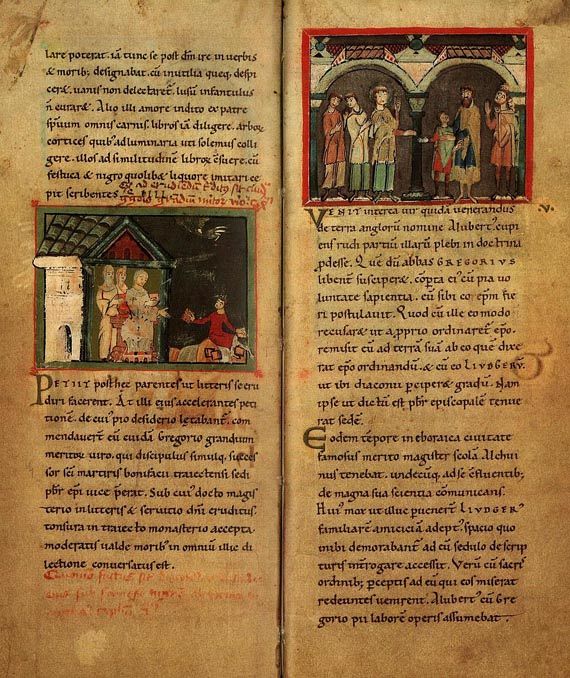 lare poterat. iā tunc se post dm̄ ire in verbis
& morib; designabat. cū inutilia queq; despi
ceret, uanis non delectaret. lusū infantulus
n̄ curaret. Alio illi amore indito ex patre
spirituum omnis carnis. libros iā diligere. arborū
cortices quib; ad luminaria uti solemus colli
gere. illos ad similitudinē libror̄ c̄suere. cū
festuca & nigro quolibet liquore imitari ce
pit scribentes.
PETIIT post hec parentes ut litteris se eru
diri facerent. At illi eius accelerantes peti
tionē. de cui' pio desiderio letabant̄. com
mendauer̄t eū cuidā Gregorio grandium
meritor̄ uiro, qui discipulus simulq; succes
sor sc̄i martiris bonifacii traiectensi sedi
pb̄r ep̄i uice p̄erat. Sub cui' docto magis
terio in litteris & seruitio dn̄i eruditus,
tonsura in traiecto monasterio accepta.
moderatis ualde morib' in omniū illic di
lectione conuersatus est.
VENIT interea uir quidā uenerandus
de terra anglorū nomine Alubert', cupi
ens rudi partiū illarū plebi in doctrina
p̄desse. Quē dū abbas GREGORIUS
libent̄ suscip̄et, cōpta ei' cū pia uo
luntate sapientia. eū sibi coep̄m fie
ri postulauit. Quod cū ille eo modo
recusaret ut a p̄prio ordinaret̄ ep̄o.
remisit eū ad terrā suā ab eo quē dixe
rat ep̄o ordinandū. & cū eo LIUDGERŪ,
ut ibi diaconii p̄cip̄et gradū. Nam
ipse ut dictū est pb̄r episcopalē tenue
rat sedē.
Eodem tēpore in eboraica ciuitate
famosus merito magister scolā Alchui
nus tenebat. undecūq; ad se c̄fluentib;
de magna sua scientia cōmunicans.
Hui' mox ut illuc puenert̄ LIUDGER'
familiarē amiciciā adept', spacio quo
inibi demorabant̄ ad eū sedulo de scrip
turis int̄rogare accessit. Verū cū sacris
ordinib; p̄ceptis ad eū qui eos miserat
redeuntes uenirent. Alubert' cū Gre
gorio pii laborē operis assumebat.